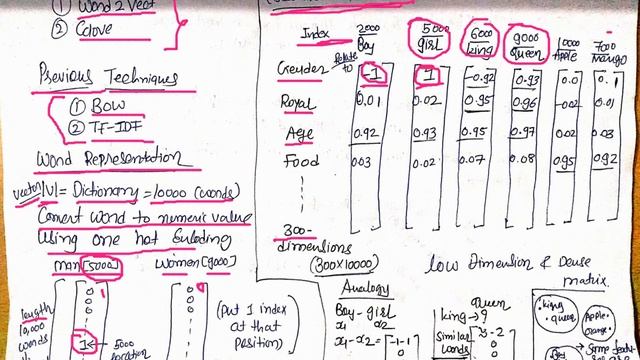 ① Word 2 Vect
② Glove
Previous Techniques
① BOW
② TF-IDF
Word Representation
vector |V| = Dictionary = 10000 (words)
Convert word to numeric value
Using one hot Encoding
man [5000]
women [9000]
0
0
0
1
0
0
0
length
10,000
words
1 ← 5000
location
(Put 1 index
at that
position)
Index 2000 5000 6000 9000 1000 7000
Boy girl king queen Apple mango
Gender Relate to -1 1 -0.92 0.93 0.0 0.1
Royal 0.01 0.02 0.95 0.96 -0.02 0.01
Age 0.92 0.93 0.95 0.97 0.02 0.03
Food 0.03 0.02 0.07 0.08 0.95 0.92
300-
dimensions
(300×10000)
low Dimension & Dense
matrix.
Analogy
Boy - girl
x1 x2
x1-x2 = -1-1
0
queen
king → ?
Similar
words
-2
0
0
king
queen
Apple
orange
→ Some